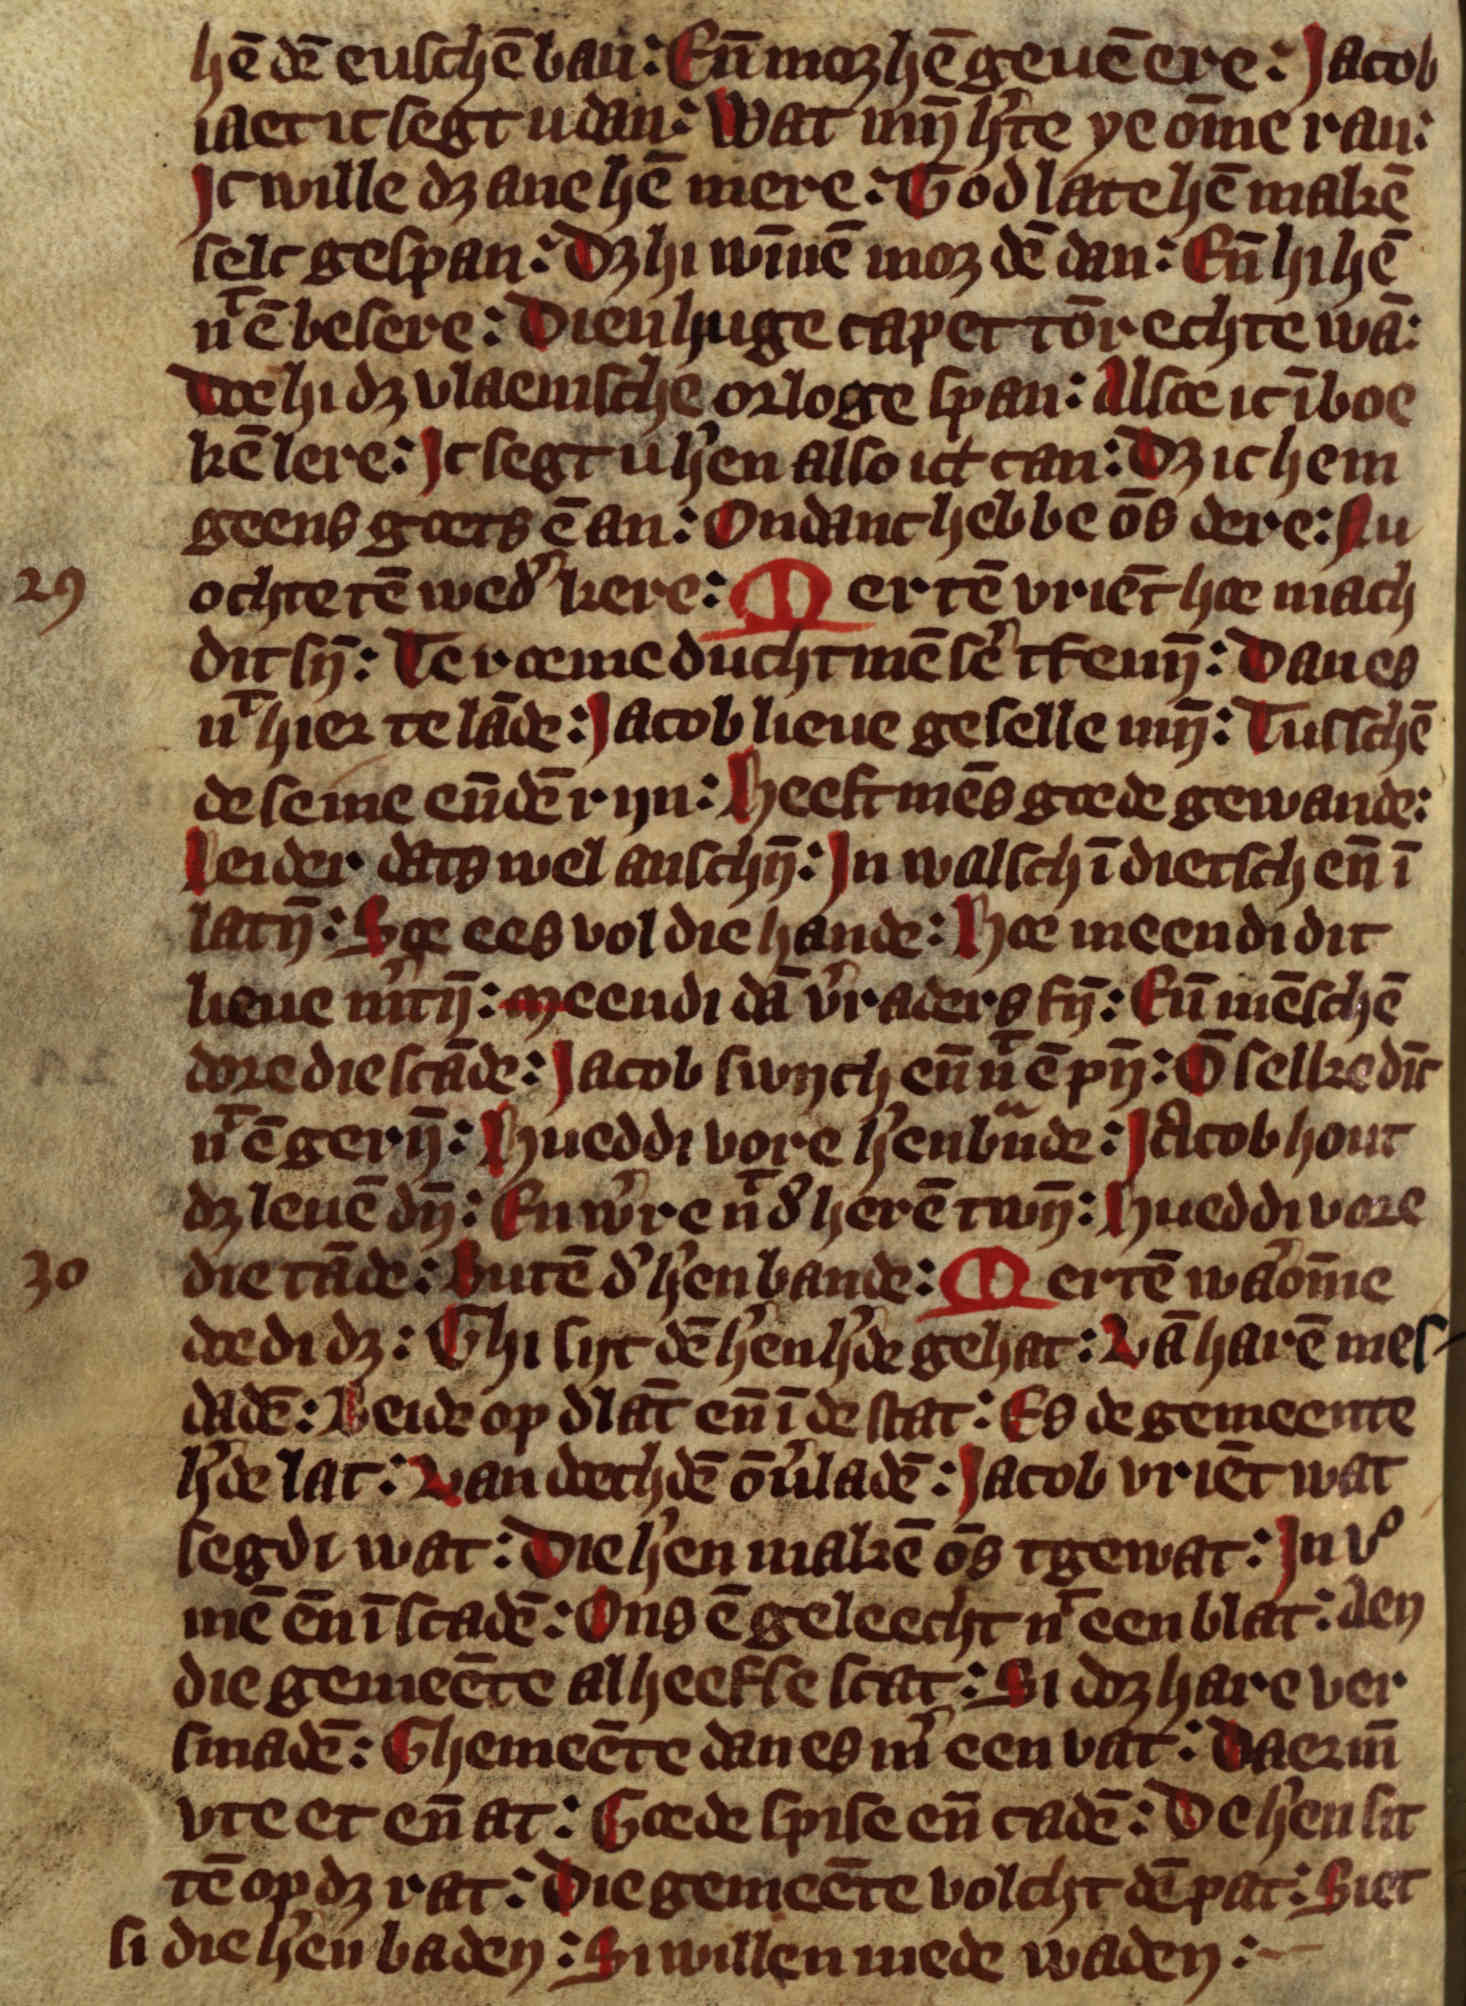 hē dē euschē ban: Eñ moꝫ hē geuē ere: Jacob
iaet ic segt u dan: Wat mȳ h̾te ye ōme ran:
Jc wille dꝫ ane hē mere: God late hē makē
selc gespan: Dꝫ hi wīnē moꝫ dē dan: Eñ hi hē
nͭ ē besere: Die nhuge capet tōrechte wā:
Doe hi dꝫ vlaemsche orloge span: Alsoe ic ī boe
kē lere: Jc segt u h̾en also ict can: Dꝫ ic hem
geens goets ē an: Ondanc hebbe ōs dere: Nu
29 ochte tē wed̾kere: Mertē vriēt hoe mach
dit sȳ: Te roeme ducht mē sē̾ tfenȳ: Dan es
nͭ hier te lāde: Jacob lieue geselle mȳ: Tusschē
de seine eñ dē rijn: Heeft mēs goede gewande:
Leider dats wel anschȳ: Jn walsch ī dietsch eñ ī
latȳ: Soe ees vol die hande: Hoe meendi dit
lieue m̾tȳ: meendi dā v̾raders fȳ: Eñ mēschē
dore die scāde: Jacob swijch eñ nͭ ē pȳ: Ō selke dīc
nͭ ē gerȳ: Hueddi vore h̾en bāde: Jacob hout
dꝫ leuē dȳ: En w̾re nͭ d̾ herē twȳ: Hueddi vore
30 die tāde: Butē d̾ h̾en bande: Mertē w̾ōme
doedi dꝫ: Ghi sijt dē h̾en h̾de gehat: Vā harē mes
dadē: Beide op dlāt eñ ī de stat: Es de gemeente
h̾de lat: Van doechdē ōv̾ladē: Jacob vriēt wat
segdi wat: Die h̾en makē ōs tgewat: Jn vͦ
mē ēn ī scadē: Ons ē geleecht nͭ een blat: den
die gemeēte al heefse scat: Si doꝫ hare ver
smadē: Ghemeēte dan es m̾ een vat: Daer m̄
vte et eñ at: Goede spise eñ cadē: De h̾en sit
tē op dꝫ rat: Die gemeēte volcht dē pat: Siet
si die h̾en baden: Si willen mede waden: